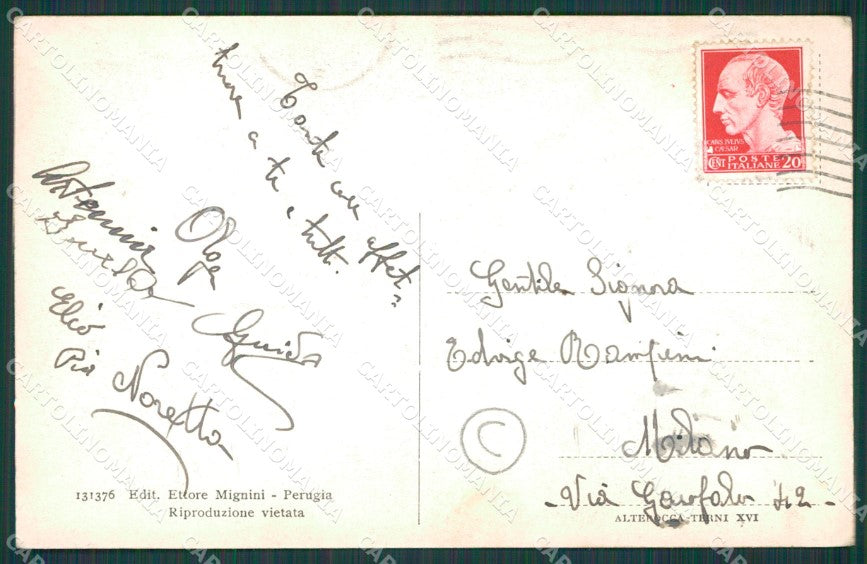 Tante cose affet=
tuose a te e tutti.
Olga
Guido
Elio
Pia
Noretta
131376 Edit. Ettore Mignini - Perugia
Riproduzione vietata
CAIVS IVLIVS
CAESAR
CENT POSTE
ITALIANE 20
Gentile Signora
Edvige Rampini
Milano
- Via Garofalo 42 -
ALTEROCCA-TERNI XVI
C
CARTOLINOMANIA